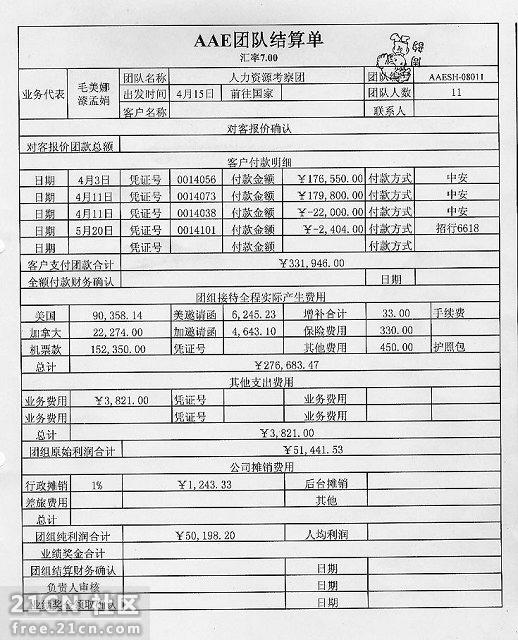 AAE团队结算单
汇率7.00
业务代表 毛美娜 漆孟娟 团队名称 人力资源考察团 团队编 AAESH-08011
出发时间 4月15日 前往国家 团队人数 11
客户名称 联系人
对客报价确认
对客报价团款总额
客户付款明细
日期 4月3日 凭证号 0014056 付款金额 ￥176,550.00 付款方式 中安
日期 4月11日 凭证号 0014073 付款金额 ￥179,800.00 付款方式 中安
日期 4月11日 凭证号 0014038 付款金额 ￥-22,000.00 付款方式 中安
日期 5月20日 凭证号 0014101 付款金额 ￥-2,404.00 付款方式 招行6618
日期 凭证号 付款金额 付款方式
客户支付团款合计 ￥331,946.00
全额付款财务确认 日期
团组接待全程实际产生费用
美国 90,358.14 美邀请函 6,245.23 增补合计 33.00 手续费
加拿大 22,274.00 加邀请函 4,643.10 保险费用 330.00
机票款 152,350.00 凭证号 其他费用 450.00 护照包
总计 ￥276,683.47
其他支出费用
业务费用 ￥3,821.00 凭证号 业务费用
业务费用 凭证号 业务费用
总计 ￥3,821.00
团组原始利润合计 ￥51,441.53
公司摊销费用
行政摊销 1% ￥1,243.33 后台摊销
差旅费用 其他
总计
团组纯利润合计 ￥50,198.20 人均利润
业绩奖金合计
团组结算财务确认 日期
负责人审核 日期
业绩奖金领取确认 日期
21CN社区
free.21cn.com